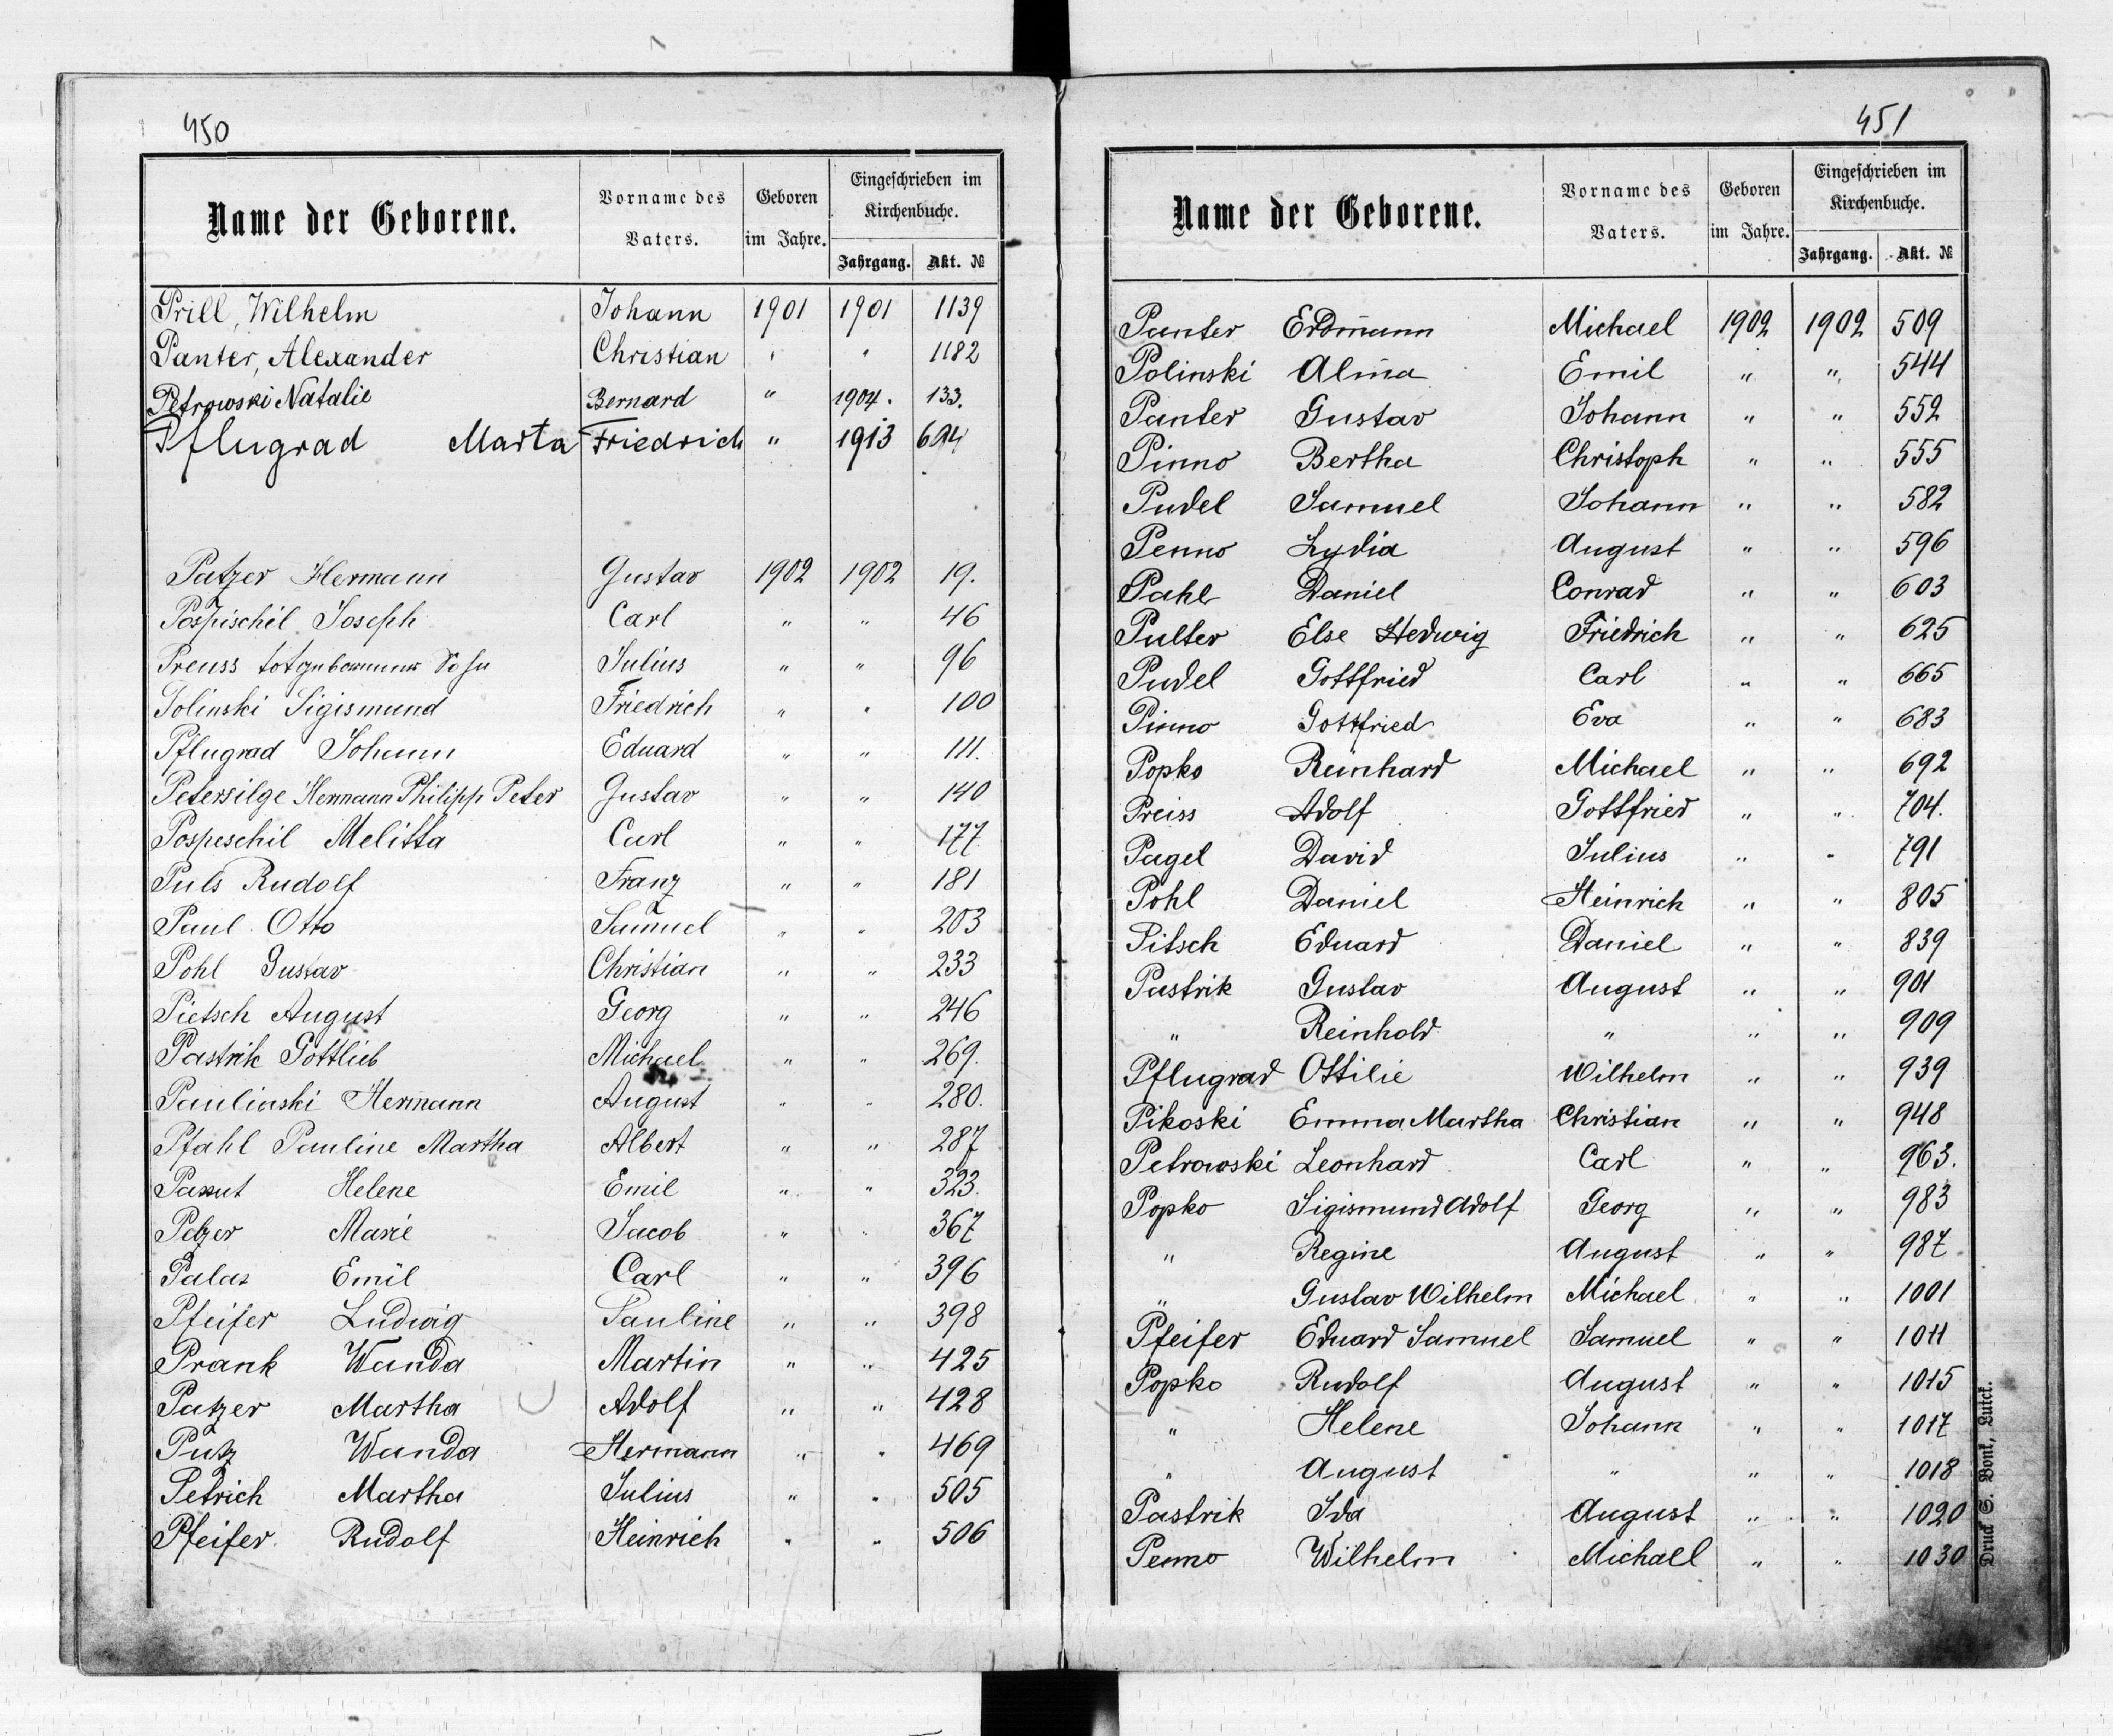 450
Name der Geborene. Vorname des Vaters. Geboren im Jahre. Eingeschrieben im Kirchenbuche. Jahrgang. Akt. №
Prill, Wilhelm Johann 1901 1901 1139
Panter, Alexander Christian " " 1182
Petrowski Natalie Bernard " 1904. 133.
Pflugrad Marta Friedrich " 1913 694
Patzer Hermann Gustav 1902 1902 19.
Pospischil Joseph Carl " " 46
Preuss totgeborener Sohn Julius " " 96
Polinski Sigismund Friedrich " " 100
Pflugrad Johann Eduard " " 111.
Petersilge Hermann Philipp Peter Gustav " " 140
Pospeschil Melitta Carl " " 177
Puls Rudolf Franz " " 181
Paul Otto Samuel " " 203
Pohl Gustav Christian " " 233
Pietsch August Georg " " 246
Pastrik Gottlieb Michael " " 269.
Paulinski Hermann August " " 280.
Pfahl Pauline Martha Albert " " 287
Helene Emil " " 323.
Pelzer Marie Jacob " " 367
Palas Emil Carl " " 396
Pfeifer Ludwig Pauline " " 398
Prank Wanda Martin " " 425
Patzer Martha Adolf " " 428
Putz Wanda Hermann " " 469
Petrich Martha Julius " " 505
Pfeifer Rudolf Heinrich " " 506
451
Name der Geborene. Vorname des Vaters. Geboren im Jahre. Eingeschrieben im Kirchenbuche. Jahrgang. Akt. №
Panter Erdmann Michael 1902 1902 509
Polinski Alma Emil " " 544
Panter Gustav Johann " " 552
Pinno Bertha Christoph " " 555
Pudel Samuel Johann " " 582
Penno Lydia August " " 596
Pahl Daniel Conrad " " 603
Pulter Else Hedwig Friedrich " " 625
Pudel Gottfried Carl " " 665
Pinno Gottfried Eva " " 683
Popko Reinhard Michael " " 692
Preiss Adolf Gottfried " " 704.
Pagel David Julius " " 791
Pohl Daniel Heinrich " " 805
Pitsch Eduard Daniel " " 839
Pastrik Gustav August " " 901
" Reinhold " " " 909
Pflugrad Ottilie Wilhelm " " 939
Pikoski Emma Martha Christian " " 948
Petrowski Leonhard Carl " " 963.
Popko Sigismund Adolf Georg " " 983
" Regine August " " 987
" Gustav Wilhelm Michael " " 1001
Pfeifer Eduard Samuel Samuel " " 1011
Popko Rudolf August " " 1015
" Helene Johann " " 1017
" August " " " 1018
Pastrik Ida August " " 1020
Penno Wilhelm Michael " " 1030
Druck S. Bonk, Luck.